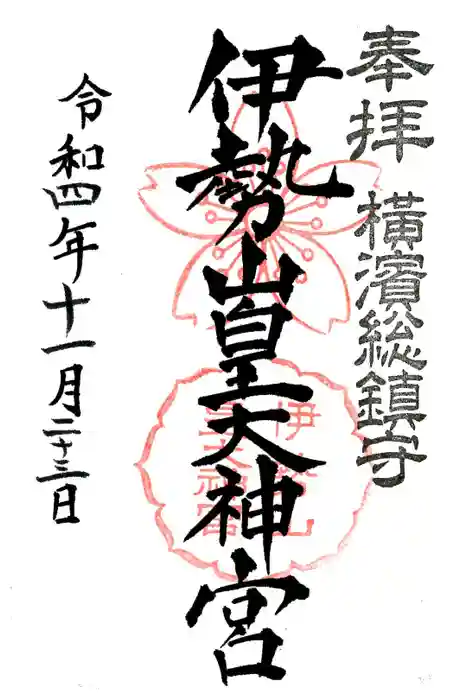 奉拝 横濱総鎮守
伊勢山皇大神宮
伊勢山
皇大神宮
令和四年十一月二十三日